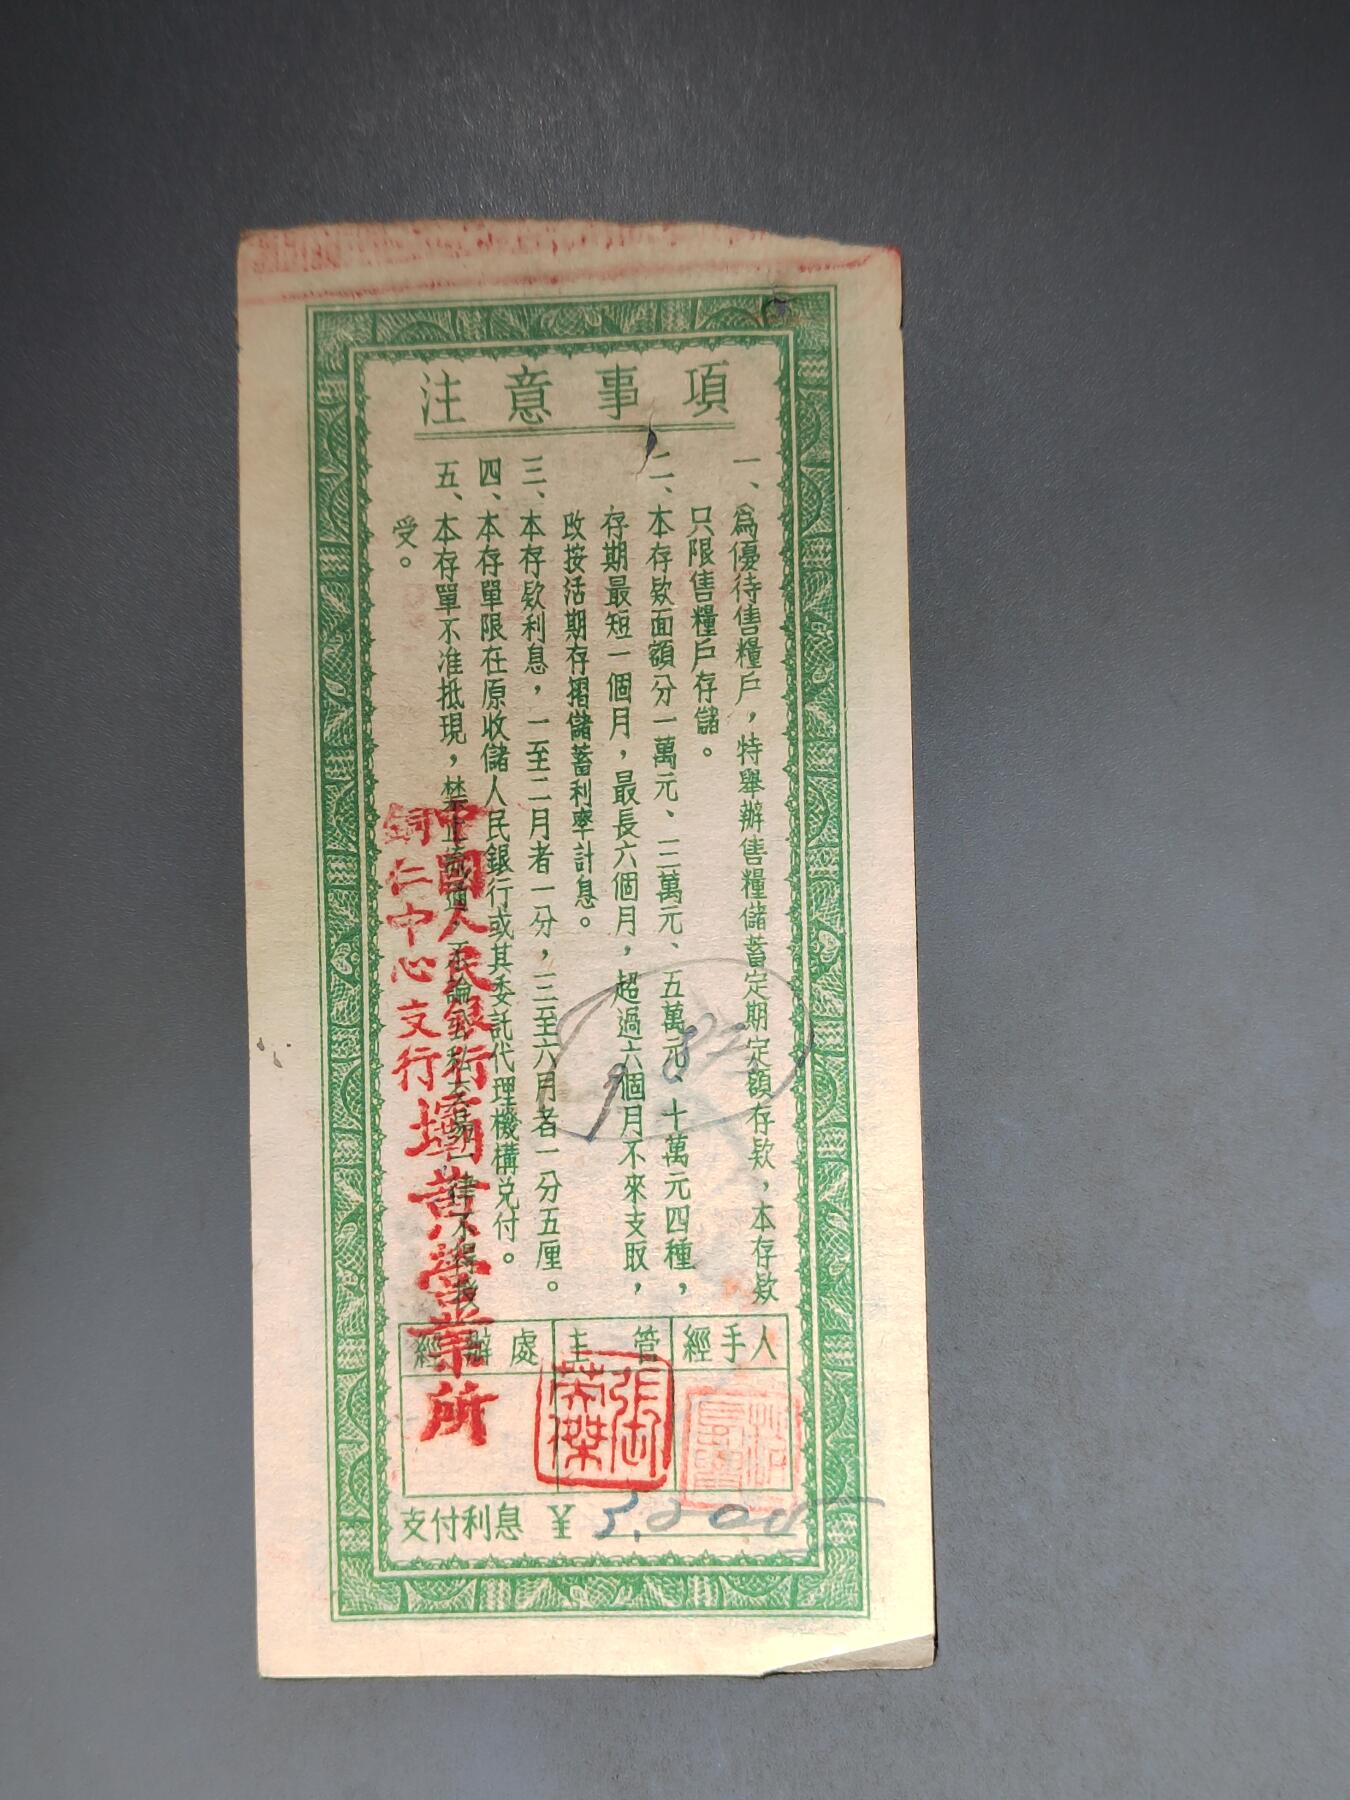 注意事項
一、為優待售糧戶，特舉辦售糧儲蓄定期定額存欵，本存欵
只限售糧戶存儲。
二、本存欵面額分一萬元、二萬元、五萬元、十萬元四種，
存期最短一個月，最長六個月，超過六個月不來支取，
改按活期存摺儲蓄利率計息。
三、本存欵利息，一至二月者一分，三至六月者一分五厘。
四、本存單限在原收儲人民銀行或其委託代理機構兌付。
五、本存單不准抵現，禁止流通，不論公私交易一律不得接
受。
中國人民銀行
銅仁中心支行
壩黃營業所
經辦處
主管
經手人
張
榮傑
支付利息 ¥